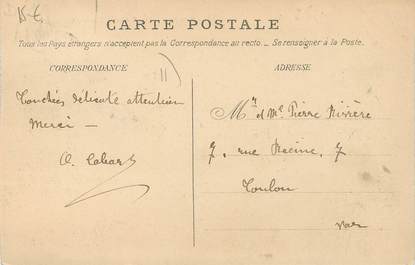 15 €
CARTE POSTALE
Tous les Pays étrangers n'acceptent pas la Correspondance au recto. _ Se renseigner à la Poste.
CORRESPONDANCE
ADRESSE
Touchés délicate attention
Merci —
Mr et Me Pierre Rivière
7, rue Racine, 7
Toulon
Var